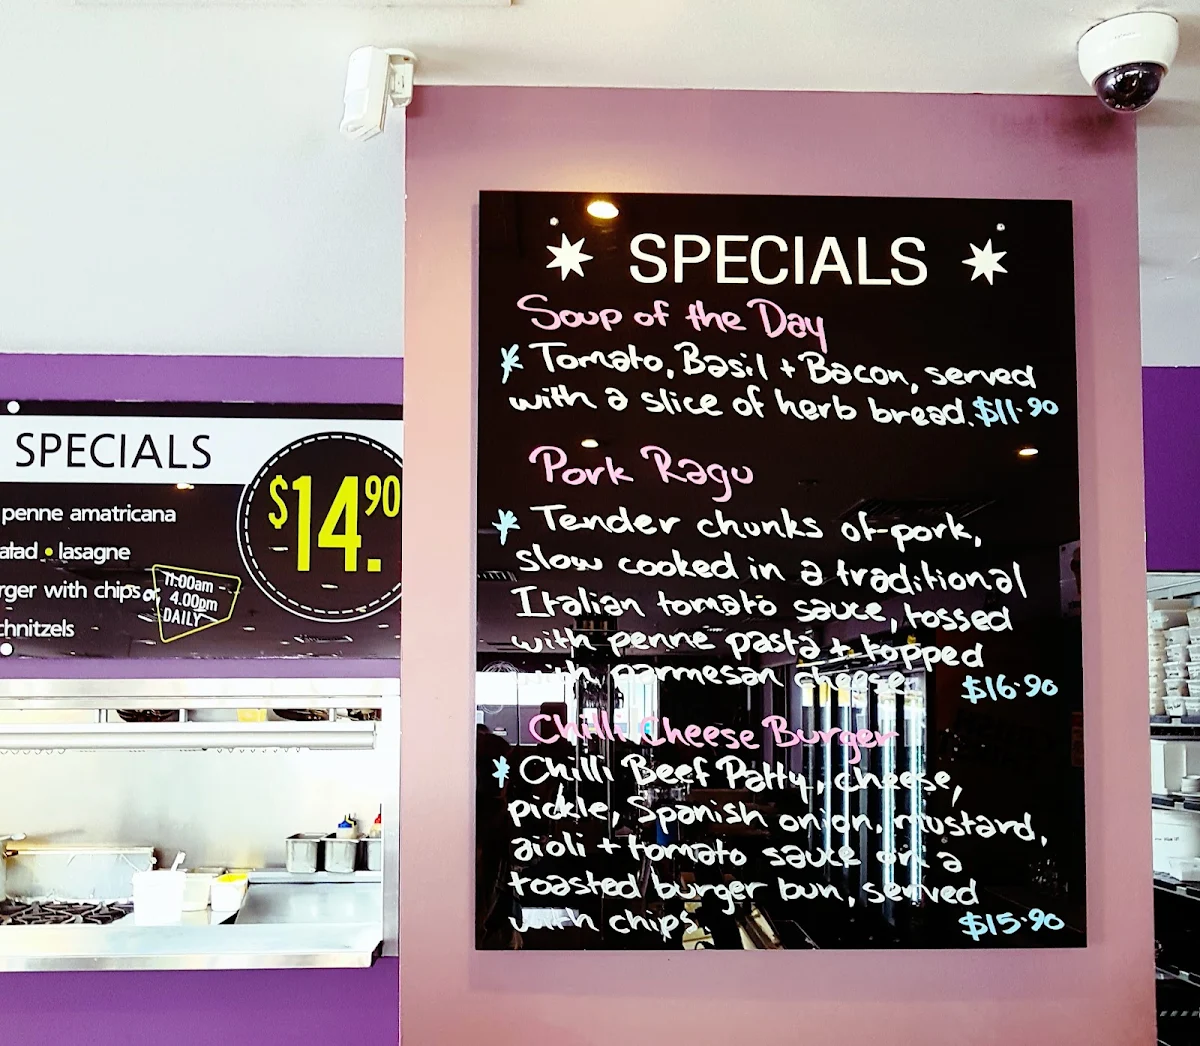 SPECIALS
penne amatricana
lasagne
with chips or
$14.90
11:00am -
4.00pm
DAILY
SPECIALS
Soup of the Day
* Tomato, Basil + Bacon, served
with a slice of herb bread. $11.90
Pork Ragu
* Tender chunks of pork,
slow cooked in a traditional
Italian tomato sauce, tossed
with penne pasta + topped
with parmesan cheese $16.90
Chilli Cheese Burger
* Chilli Beef Patty, cheese,
pickle, Spanish onion, mustard,
aioli + tomato sauce on a
toasted burger bun, served
with chips. $15.90